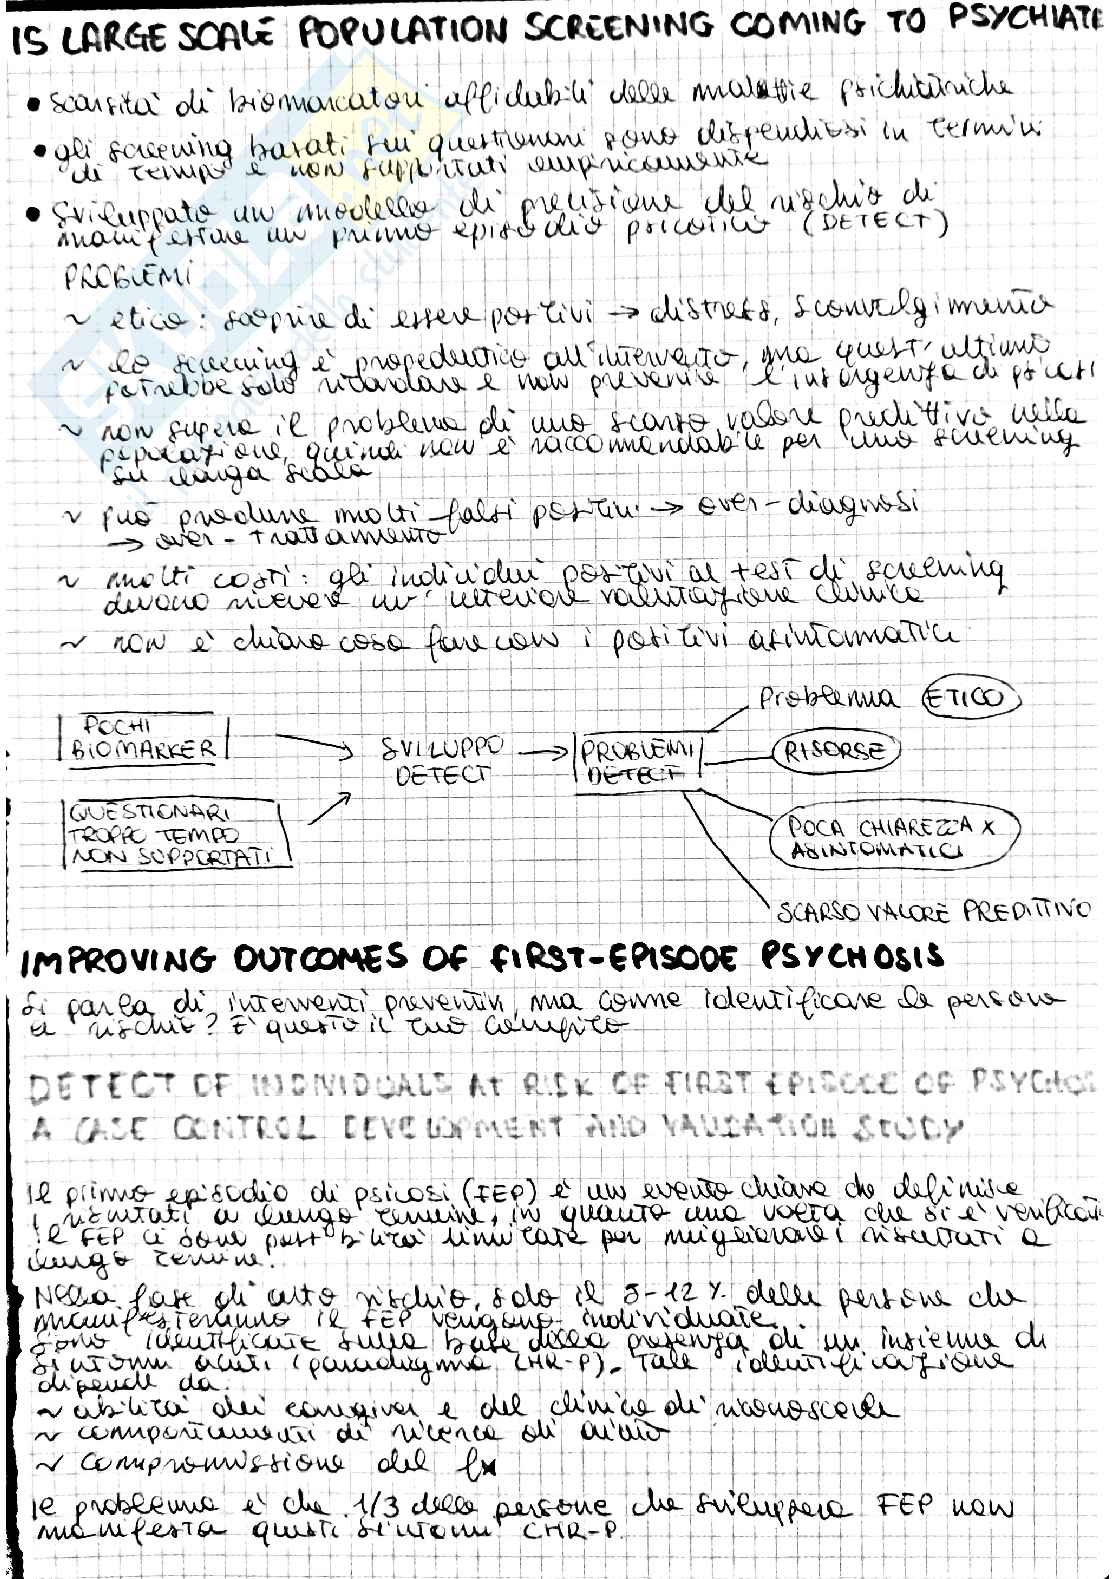 IS LARGE SCALE POPULATION SCREENING COMING TO PSYCHIATR
• scarsità di biomarcatori affidabili delle malattie psichiatriche
• gli screening basati sui questionari sono dispendiosi in termini
di tempo e non supportati empiricamente
• Sviluppato un modello di previsione del rischio di
manifestare un primo episodio psicotico (DETECT)
PROBLEMI
~ etico: scoprire di essere positivi → distress, sconvolgimento
~ lo screening è propedeutico all'intervento, ma quest'ultimo
potrebbe solo ritardare e non prevenire l'insorgenza di psicosi
~ non supera il problema di uno scarso valore predittivo nella
popolazione, quindi non è raccomandabile per uno screening
su larga scala
~ può produrre molti falsi positivi → over-diagnosi
→ over-trattamento
~ molti costi: gli individui positivi al test di screening
devono ricevere un'ulteriore valutazione clinica
~ non è chiaro cosa fare con i positivi asintomatici
Problema ETICO
POCHI
BIOMARKER
SVILUPPO
DETECT
PROBLEMI
DETECT
RISORSE
QUESTIONARI
TROPPO TEMPO
NON SUPPORTATI
POCA CHIAREZZA X
ASINTOMATICI
SCARSO VALORE PREDITTIVO
IMPROVING OUTCOMES OF FIRST-EPISODE PSYCHOSIS
Si parla di interventi preventivi, ma come identificare le persone
a rischio? È questo il tuo compito
DETECT OF INDIVIDUALS AT RISK OF FIRST EPISODE OF PSYCHOS
A CASE CONTROL DEVELOPMENT AND VALIDATION STUDY
Il primo episodio di psicosi (FEP) è un evento chiave che definisce
i risultati a lungo termine, in quanto una volta che si è verificato
il FEP ci sono possibilità limitate per migliorare i risultati a
lungo termine.
Nella fase di alto rischio, solo il 5-12% delle persone che
manifesteranno il FEP vengono individuate.
Sono identificate sulla base della presenza di un insieme di
sintomi acuti (paradigma CHR-P). Tale identificazione
dipende da:
~ abilità dei caregiver e del clinico di riconoscerle
~ comportamenti di ricerca di aiuto
~ compromissione del fx
Il problema è che 1/3 delle persone che sviluppera FEP non
manifesta questi sintomi CHR-P.